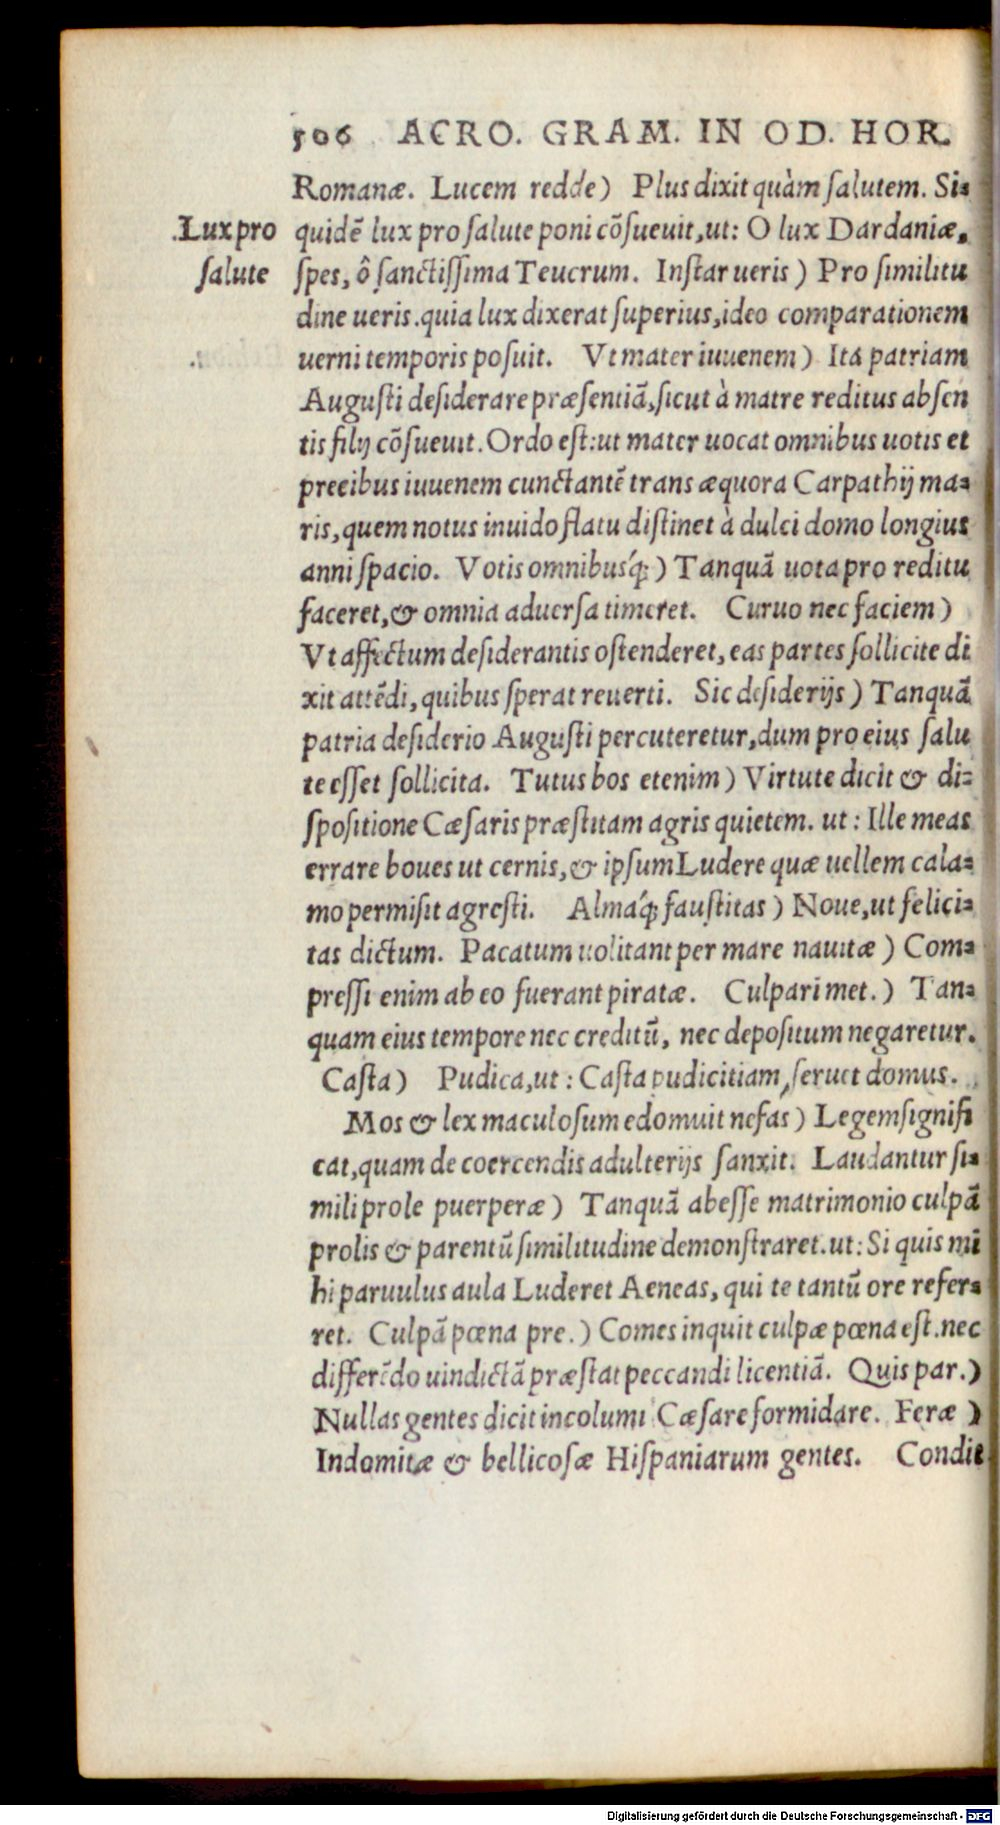 506 ACRO. GRAM. IN OD. HOR.
Romanæ. Lucem redde) Plus dixit quàm salutem. Si-
Lux pro salute
quidē lux pro salute poni cōsueuit, ut: O lux Dardaniæ,
spes, ô sanctissima Teucrum. Instar ueris) Pro similitu
dine ueris. quia lux dixerat superius, ideo comparationem
uerni temporis posuit. Vt mater iuuenem) Ita patriam
Augusti desiderare præsentiā, sicut à matre reditus absen
tis filij cōsueuit. Ordo est: ut mater uocat omnibus uotis et
precibus iuuenem cunctantē trans æquora Carpathij ma-
ris, quem notus inuido flatu distinet à dulci domo longius
anni spacio. Votis omnibusq́;) Tanquā uota pro reditu
faceret, & omnia aduersa timeret. Curuo nec faciem)
Vt affectum desiderantis ostenderet, eas partes sollicite di
xit attēdi, quibus sperat reuerti. Sic desiderijs) Tanquā
patria desiderio Augusti percuteretur, dum pro eius salu
te esset sollicita. Tutus bos etenim) Virtute dicit & di-
spositione Cæsaris præstitam agris quietem. ut: Ille meas
errare boues ut cernis, & ipsum Ludere quæ uellem cala-
mo permisit agresti. Almaq́; faustitas) Noue, ut felici-
tas dictum. Pacatum uolitant per mare nauitæ) Com-
pressi enim ab eo fuerant piratæ. Culpari met.) Tan-
quam eius tempore nec creditū, nec depositum negaretur.
Casta) Pudica, ut: Casta pudicitiam, seruet domus.
Mos & lex maculosum edomuit nefas) Legem signifi
cat, quam de coercendis adulterijs sanxit. Laudantur si-
mili prole puerperæ) Tanquā abesse matrimonio culpā
prolis & parentū similitudine demonstraret. ut: Si quis mī
hi paruulus aula Luderet Aeneas, qui te tantū ore refer-
ret. Culpā pœna pre.) Comes inquit culpæ pœna est. nec
differēdo uindictā præstat peccandi licentiā. Quis par.)
Nullas gentes dicit incolumi Cæsare formidare. Feræ)
Indomitæ & bellicosæ Hispaniarum gentes. Condit
Digitalisierung gefördert durch die Deutsche Forschungsgemeinschaft - DFG